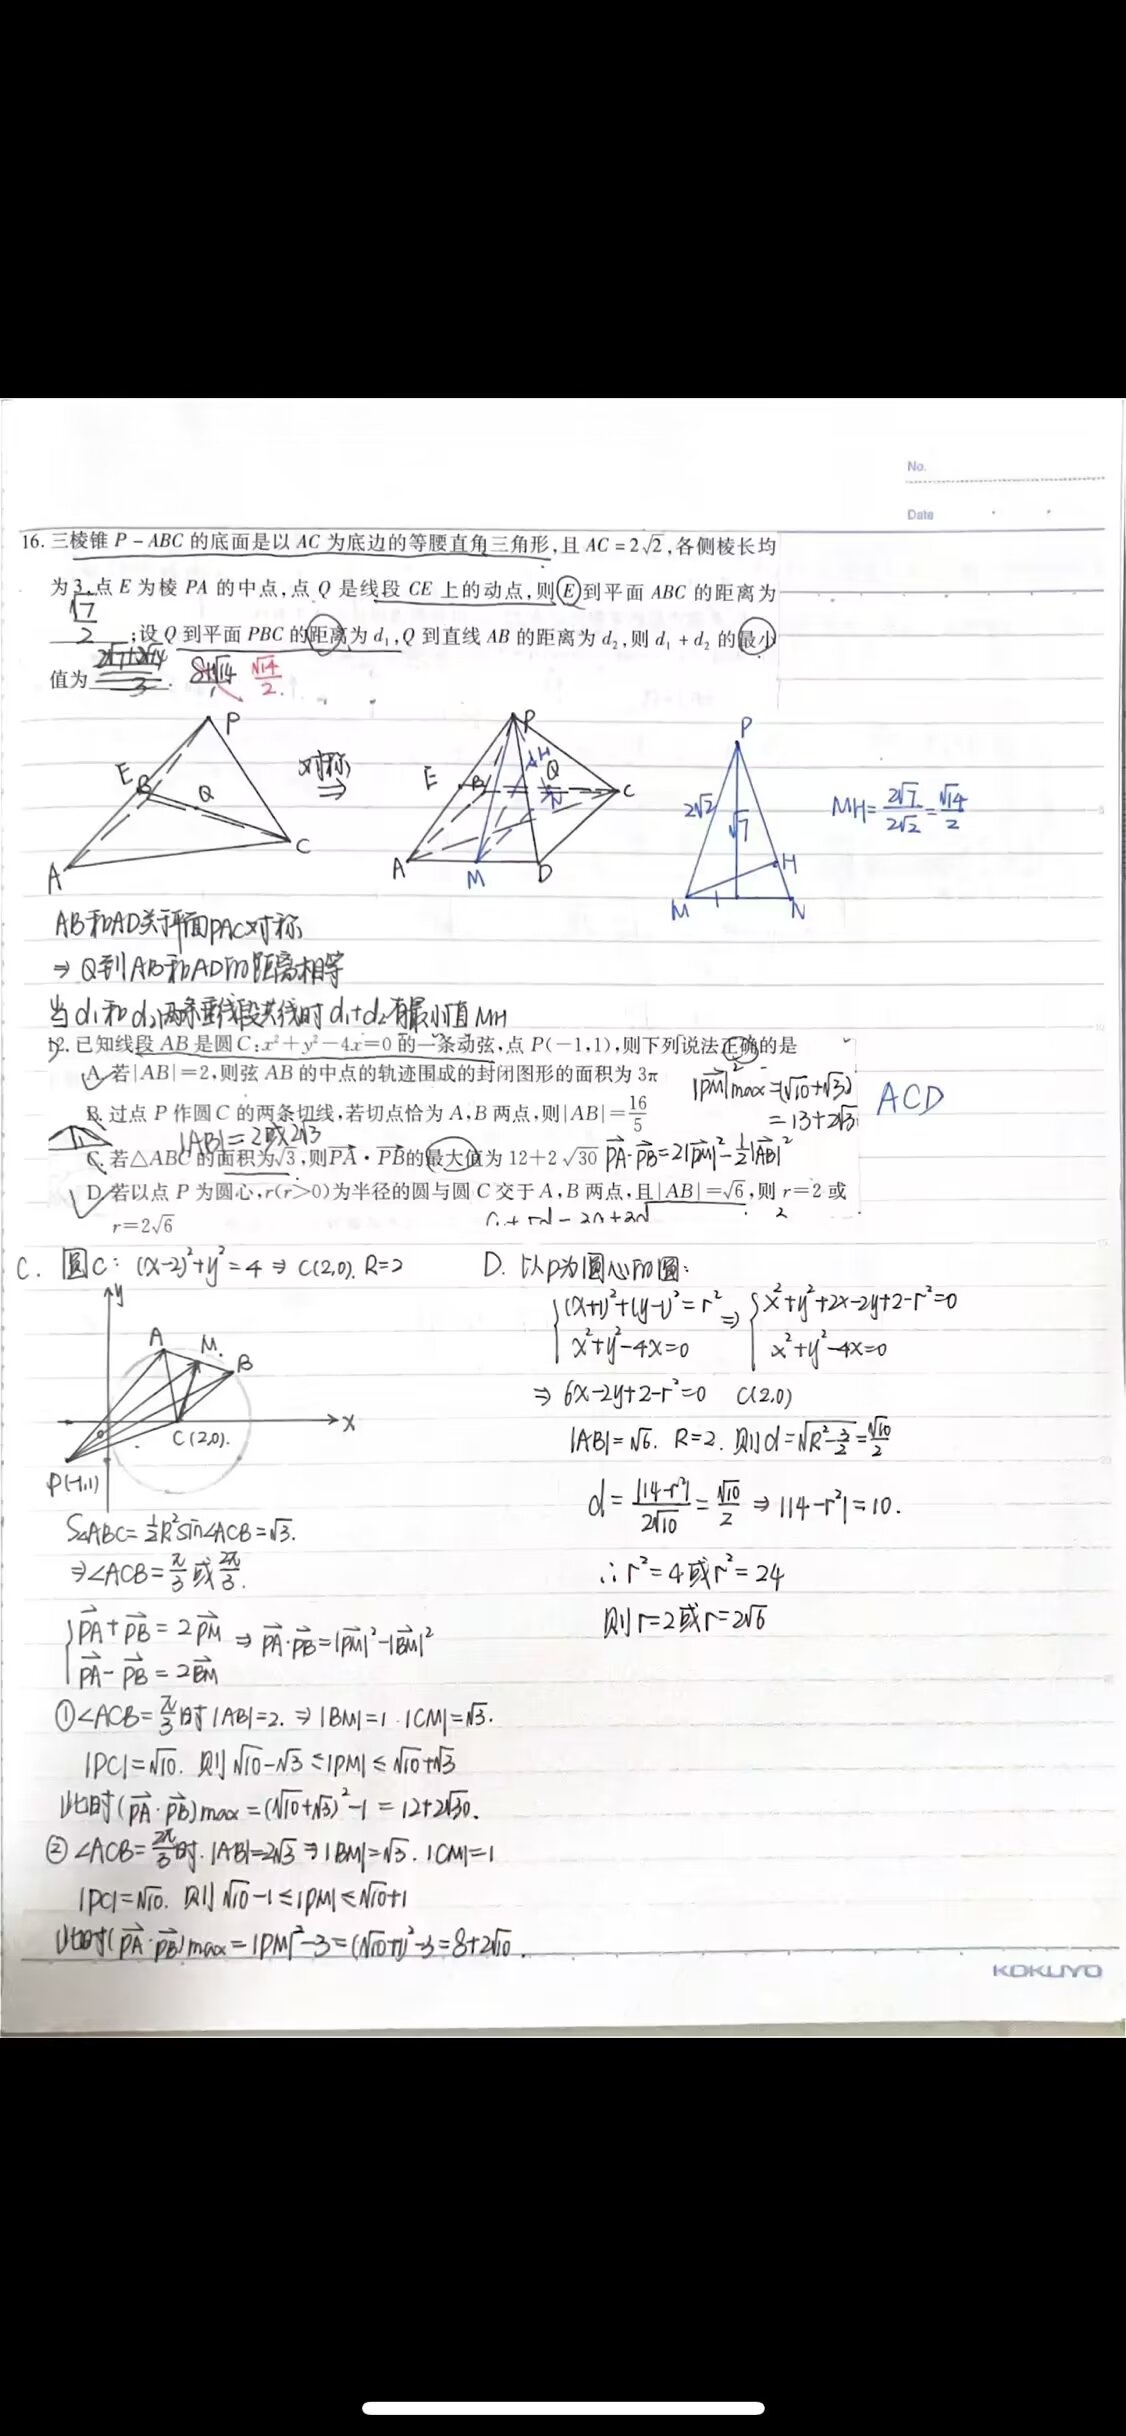 No.
Date
16. 三棱锥 P-ABC 的底面是以 AC 为底边的等腰直角三角形,且 AC=2√2,各侧棱长均
为 3,点 E 为棱 PA 的中点,点 Q 是线段 CE 上的动点,则 E 到平面 ABC 的距离为
√7/2 ;设 Q 到平面 PBC 的距离为 d₁,Q 到直线 AB 的距离为 d₂,则 d₁+d₂ 的最小
值为 √14/2.
P
E
B
Q
A
C
对称
⇒
P
E
B
H
Q
N
C
A
M
D
P
2√2
√7
H
M
1
N
MH=2√7/2√2=√14/2
AB和AD关于平面PAC对称
⇒ Q到AB和AD的距离相等
当d₁和d₂两条垂线段共线时d₁+d₂有最小值MH
12. 已知线段 AB 是圆 C:x²+y²-4x=0 的一条动弦,点 P(-1,1),则下列说法正确的是
A. 若|AB|=2,则弦 AB 的中点的轨迹围成的封闭图形的面积为 3π
|PM|²max=(√10+√3)²
=13+2√3
ACD
B. 过点 P 作圆 C 的两条切线,若切点恰为 A,B 两点,则|AB|=16/5
|AB|=2或2√3
C. 若△ABC 的面积为√3,则PA·PB的最大值为 12+2√30
PA·PB=2|PM|²-½|AB|²
D. 若以点 P 为圆心,r(r>0)为半径的圆与圆 C 交于 A,B 两点,且|AB|=√6,则 r=2 或
r=2√6
C. 圆C: (x-2)²+y²=4 ⇒ C(2,0). R=2
y
A
M
B
x
C(2,0).
P(-1,1)
S△ABC=½R²sin∠ACB=√3.
⇒∠ACB=π/3 或 2π/3.
{PA+PB=2PM
PA-PB=2BM ⇒ PA·PB=|PM|²-|BM|²
①∠ACB=π/3时|AB|=2. ⇒ |BM|=1. |CM|=√3.
|PC|=√10. 则√10-√3≤|PM|≤√10+√3
此时(PA·PB)max=(√10+√3)²-1=12+2√30.
②∠ACB=2π/3时.|AB|=2√3⇒|BM|=√3. |CM|=1
|PC|=√10. 则√10-1≤|PM|≤√10+1
此时(PA·PB)max=|PM|²-3=(√10+1)²-3=8+2√10.
D. 以P为圆心的圆:
{(x+1)²+(y-1)²=r² ⇒ {x²+y²+2x-2y+2-r²=0
x²+y²-4x=0 x²+y²-4x=0
⇒ 6x-2y+2-r²=0 C(2,0)
|AB|=√6. R=2. 则d=√(R²-3/2)=√10/2
d=|14-r²|/2√10=√10/2 ⇒ |14-r²|=10.
∴r²=4或r²=24
则r=2或r=2√6
KOKUYO